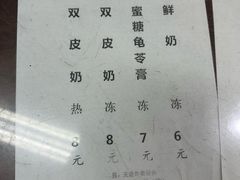 双皮奶 热 8元
双皮奶 冻 8元
蜜糖龟苓膏 冻 7元
鲜奶 冻 6元